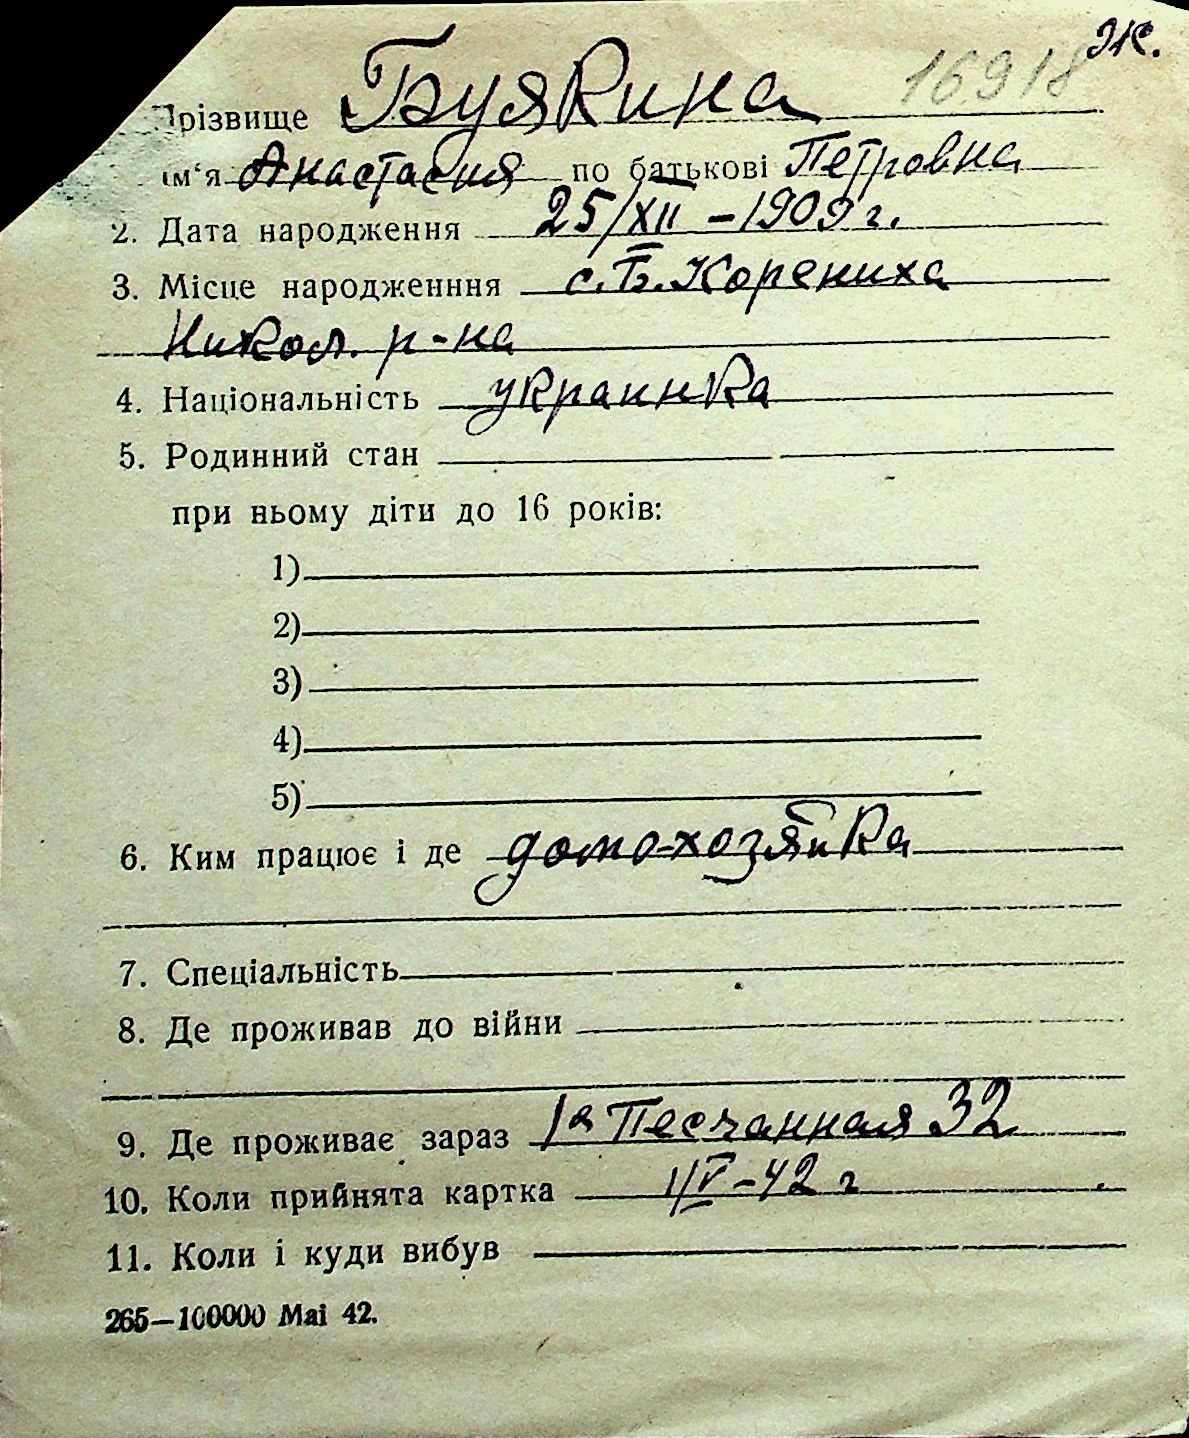 ж.
16918
Прізвище Буякина
Ім'я Анастасия по батькові Петровна
2. Дата народження 25/XII – 1909 г.
3. Місце народженння с. Б. Корениха
Никол. р-на
4. Національність украинка
5. Родинний стан
при ньому діти до 16 років:
1)
2)
3)
4)
5)
6. Ким працює і де домохозяйка
7. Спеціальність
8. Де проживав до війни
9. Де проживає зараз 1я Песчанная 32
10. Коли прийнята картка 1/V – 42 г
11. Коли і куди вибув
265—100000 Mai 42.